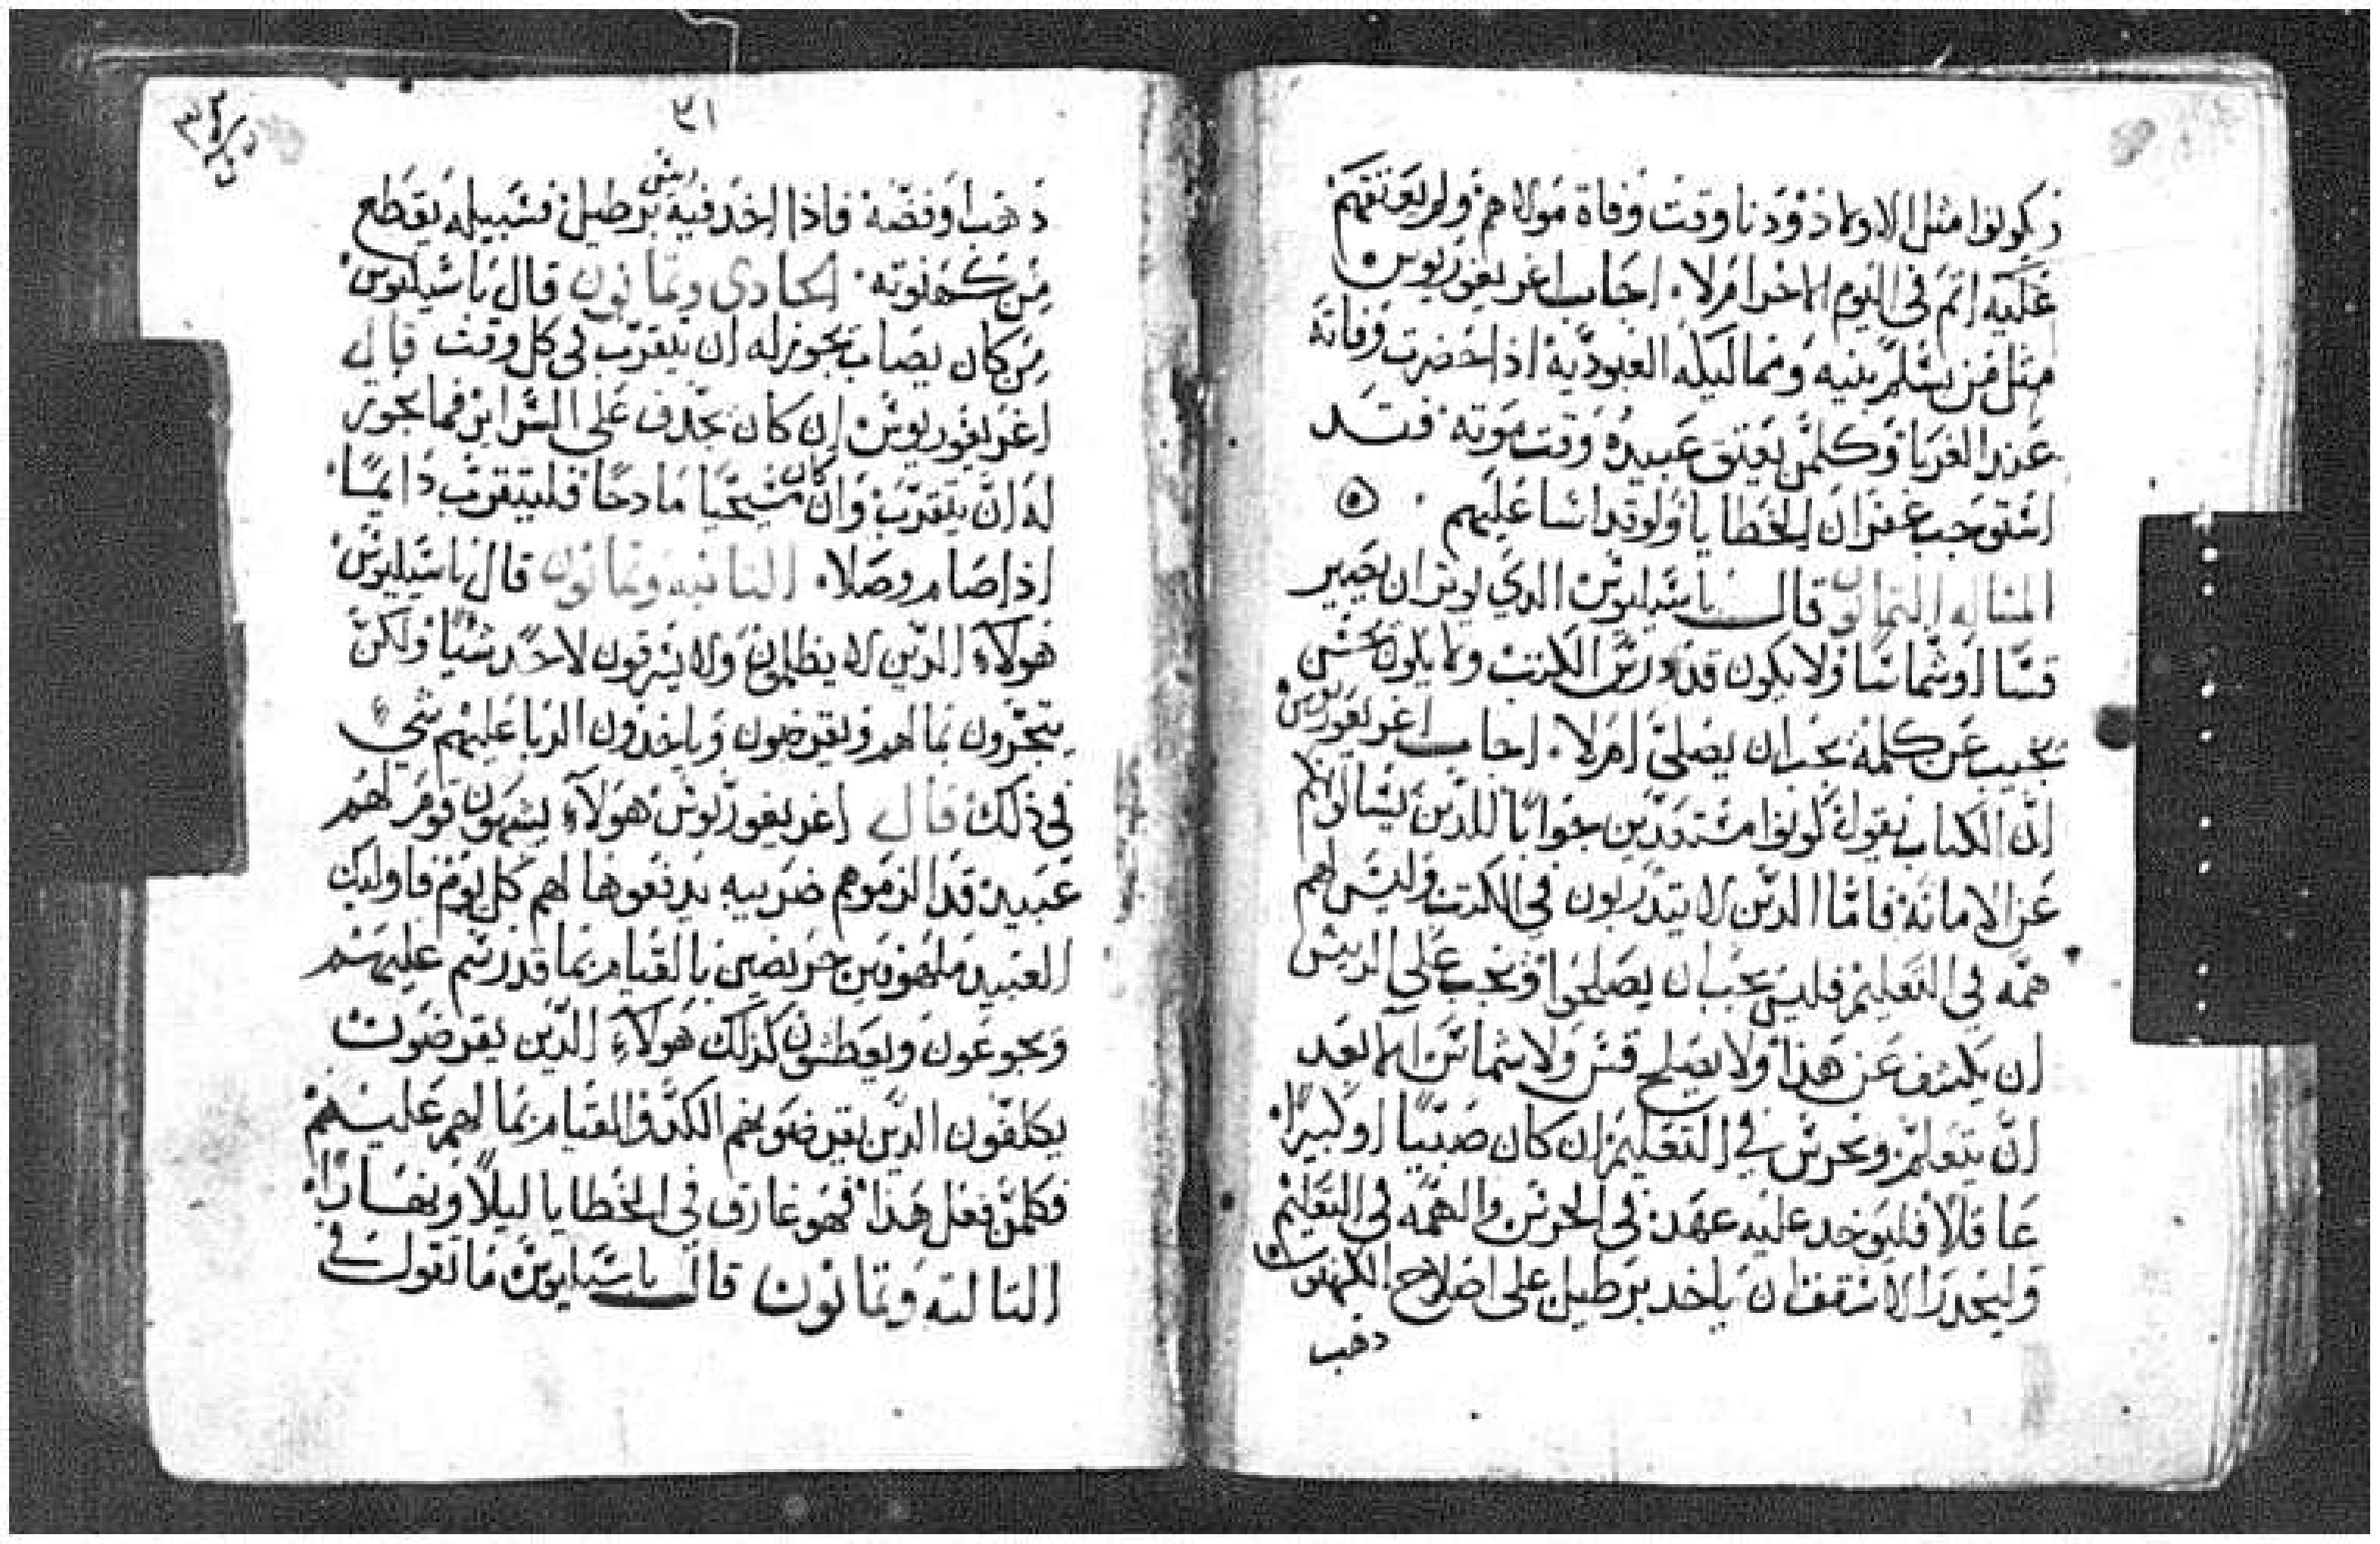 ز يكونوا مثل الاولاد ذؤدنا وقت وفاة مولاهم ولم يعتقهم
عليه اتم في اليوم الاخر امرلا. اجاب اغريغوريوس.
مثل من يسلم بنيه ومماليكه العبوديه اذا حضرت وفاته
عند الغربا وكلمن يعتق عبيده وقت موته فقد
استوجب غفران الخطايا ولو قد اسا عليهم .
المساله الثمانون قال باسيليوس الدي يريد ان يصير
قسا او شماسا ولا يكون قد درس الكتب ولا يكون يحسن
يجيب عن كلمه يجب ان يصلح امرلا. اجاب اغريغوريوس
ان الكتاب يقول كونوا مستعدين جوابا للدين يسالونكم
عن الامانه فاما الدين لا يتدربون في الكتب وليس لهم
همه في التعليم فليس يجب ان يصلحوا ويجب على الريس
ان يكشف عن هذا ولا يصلح قس ولا شماس الا بعد
ان يتعلم ويحرس في التعليم ان كان صبيا او كبيرا
عاقلا فليوخد عليه عهد في الحرس والهمه في التعليم
وليحدر الاسقف ان ياخد برطيل على اصلاح الكهنوت
دهب
٣١
دهبا وفضه فاذا اخد فيه برطيل فسبيله يقطع
من كهنوته. الحادي وثمانون قال باسيليوس.
من كان يصاب يجوز له ان يتقرب في كل وقت قال
اغريغوريوس ان كان يجدف على السراير فما يجوز
له ان يتقرب وان كان مسيحيا مادحا فليتقرب دايما.
اذا صام وصلا. الثانيه وثمانون قال باسيليوس
هولاء الدين لا يظلمون ولا يسرقون لاحد شيا ولكن
يتجرون بمالهم ويقرضون وياخدون الربا عليهم شي
في ذلك قال اغريغوريوس هولاء يشبهون قوم لهم
عبيد قد الزموهم ضريبه يدفعوها لهم كل يوم فاوليك
العبيد ملهوفين حريصين بالقيام بما قد رسم عليهم
ويجوعون ويعطشون كذلك هولاء الدين يقرضون
يكلفون الدين يقرضونهم الكد والقيام بما لهم عليهم
فكلمن فعل هذا فهو غارق في الخطايا ليلا ونهارا.
الثالثه وثمانون قال باسيليوس ما تقول في